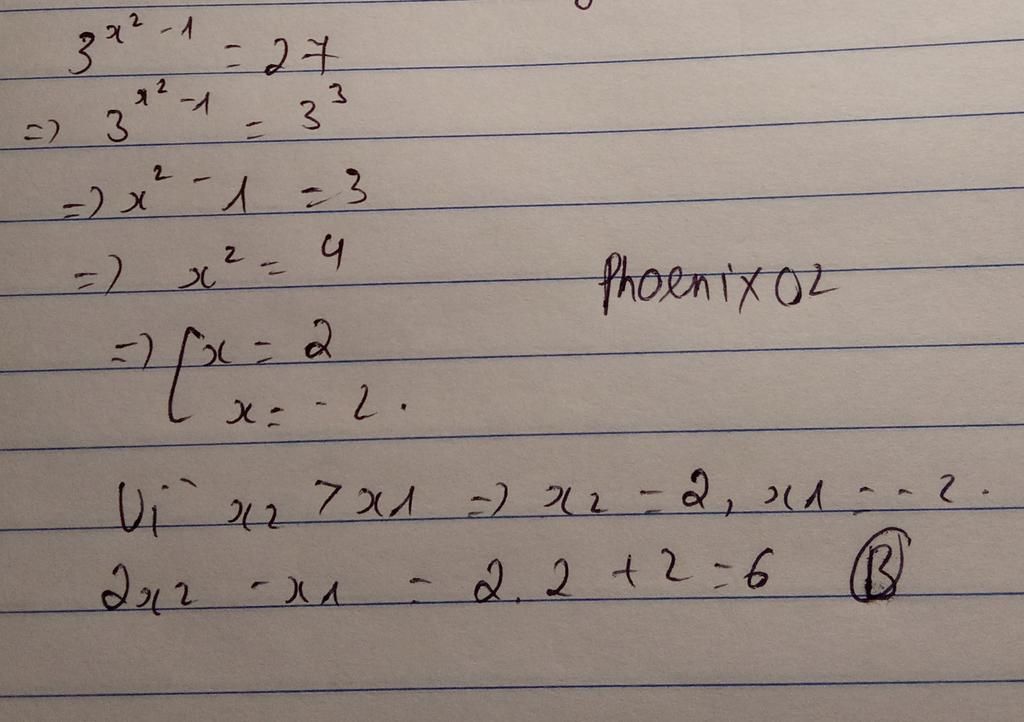 3^{x^2 - 1} = 27
=> 3^{x^2 - 1} = 3^3
=> x^2 - 1 = 3
=> x^2 = 4
Phoenix02
=> [x = 2
x = -2.
Vì x2 > x1 => x2 = 2, x1 = -2.
2x2 - x1 = 2.2 + 2 = 6 Ⓑ